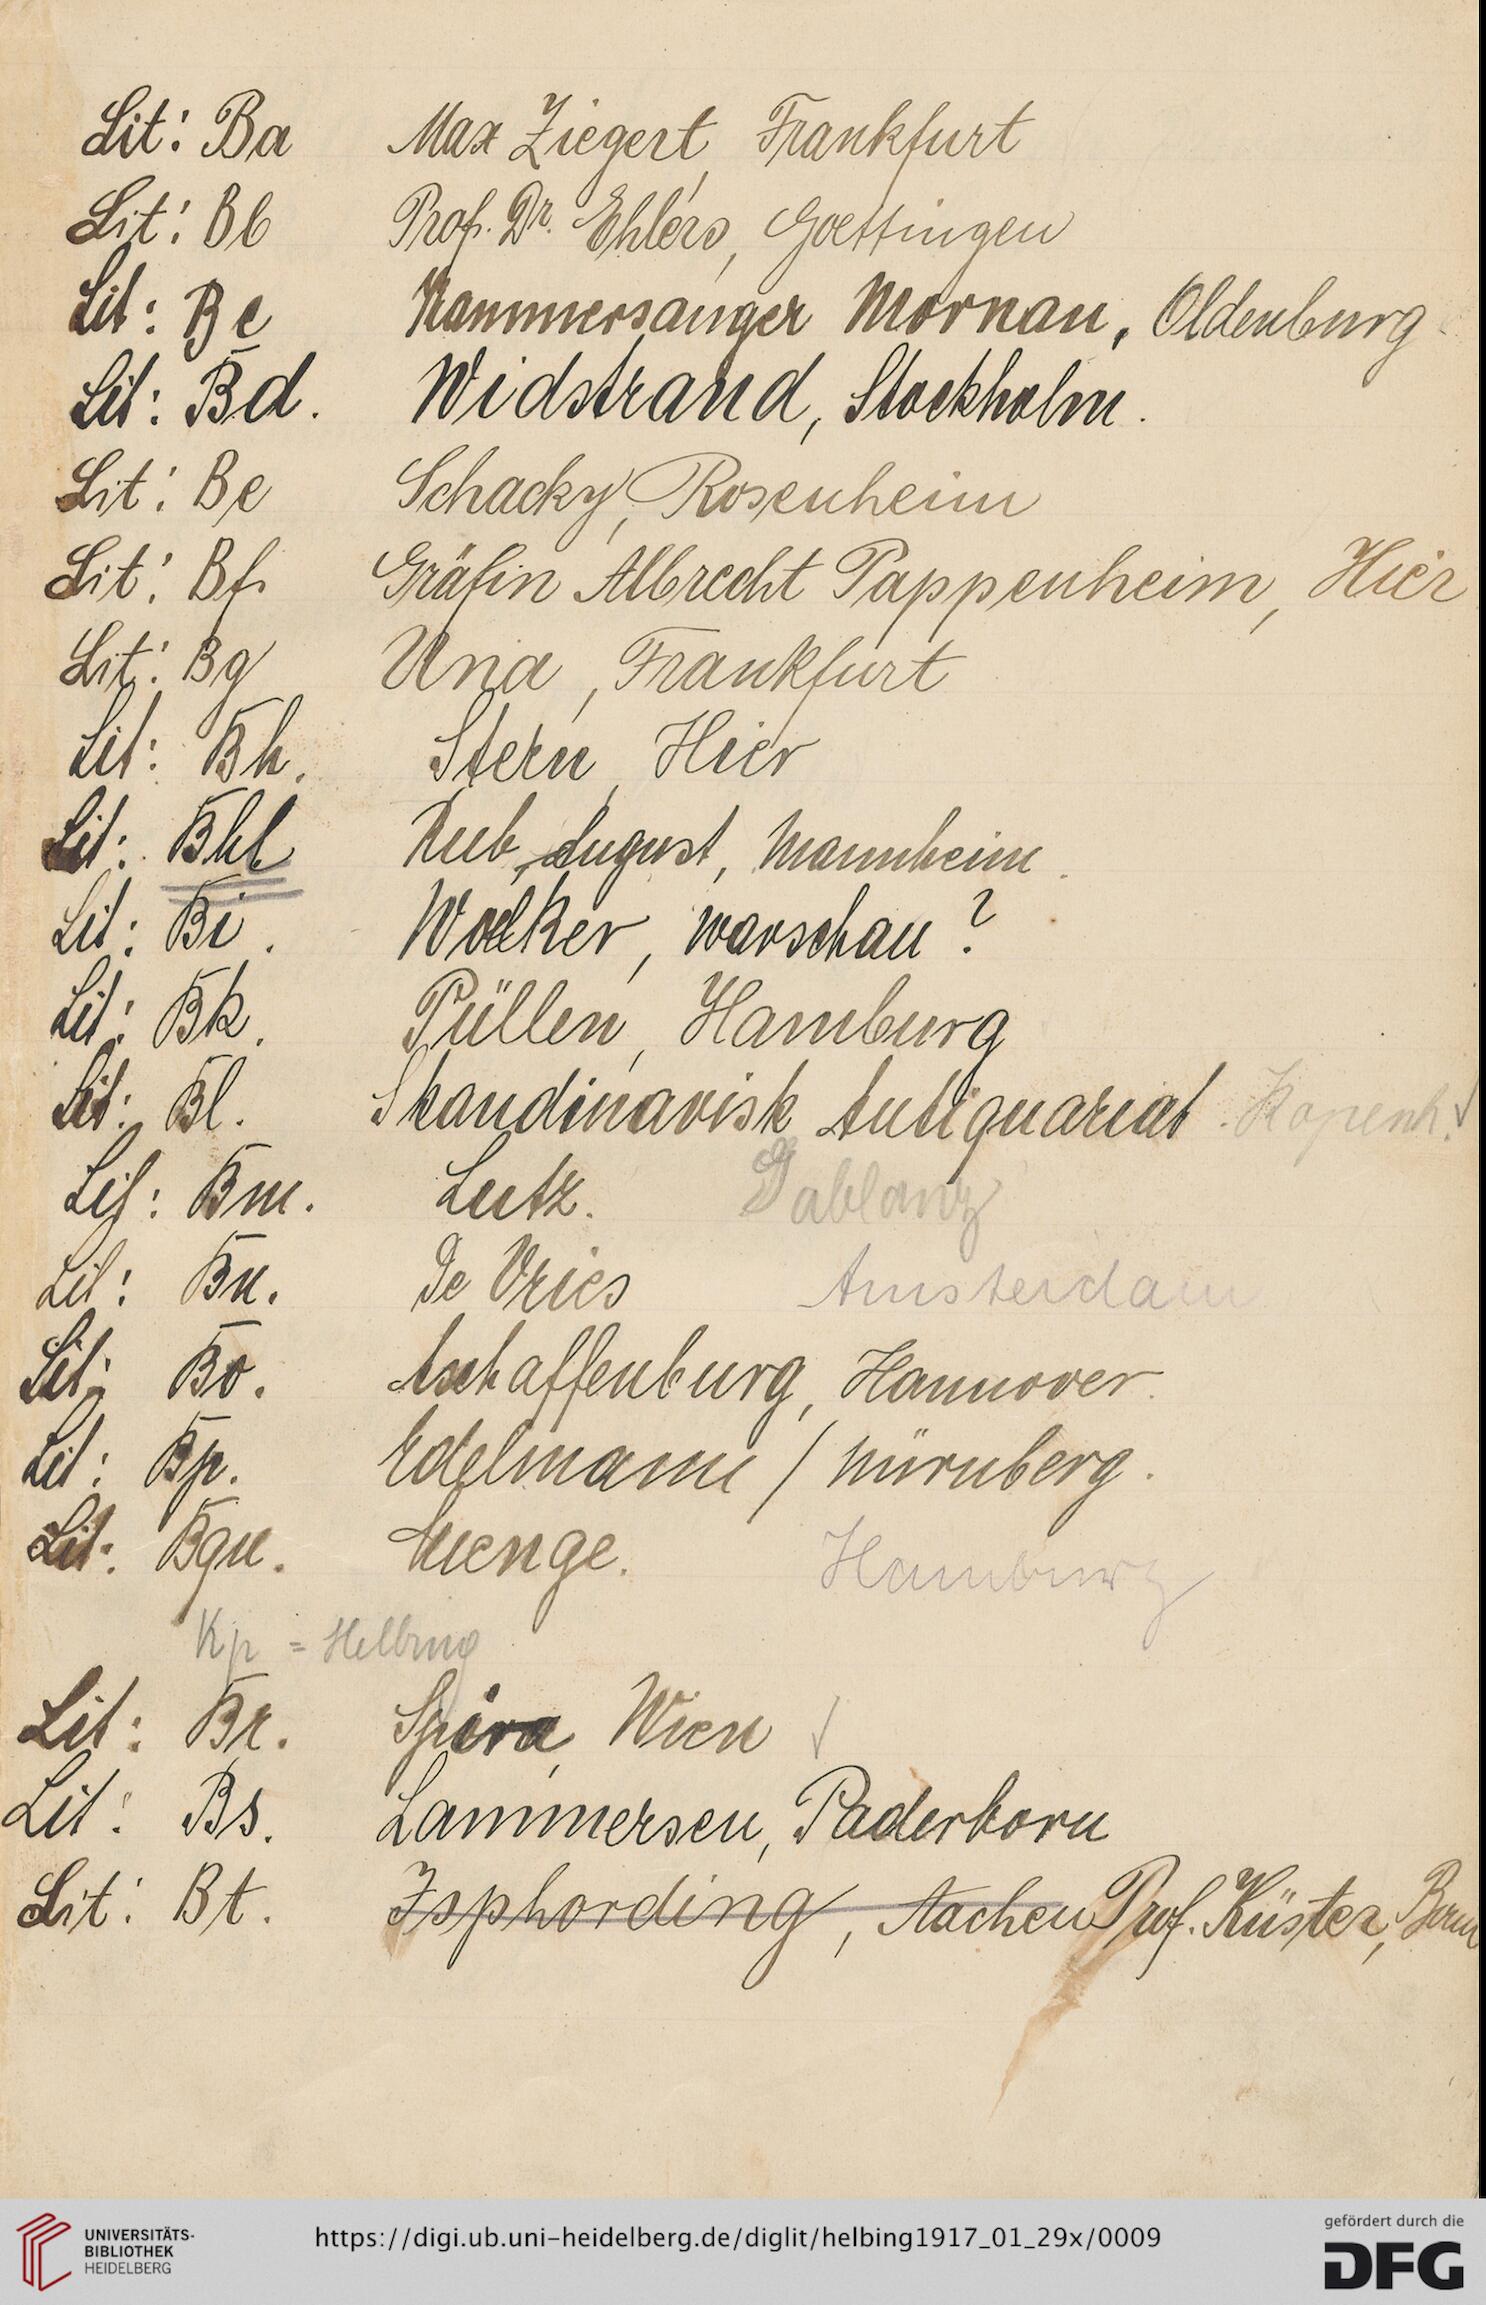 Lit: Ba Max Ziegert, Frankfurt
Lit: Bb Prof. Dr. Ehlers, Goettingen
Lit: Bc Kammersanger Mornau, Oldenburg
Lit: Bd. Widstrand, Stockholm.
Lit: Be Schacky, Rosenheim
Lit: Bf. Gräfin Albrecht Pappenheim, Hier
Lit: Bg Una, Frankfurt
Lit: Bh. Stern, Hier
Lit: Bhl Kub, August, Mannheim.
Lit: Bi. Woelker, Warschau?
Lit: Bk. Püllen, Hamburg
Lit: Bl. Skandinavisk Antiquariat. Kopenh.
Lit: Bm. Lutz. Gablonz
Lit: Bn. De Vries Amsterdam
Lit: Bo. Aschaffenburg, Hannover.
Lit: Bp. Edelmann / Nürnberg.
Lit: Bqu. Menge. Hamburg
Kp = Helbing
Lit: Br. Spira, Wien
Lit: Bs. Lammersen, Paderborn
Lit: Bt. Isphording, Aachen Prof. Küster,
UNIVERSITÄTS-
BIBLIOTHEK
HEIDELBERG
https://digi.ub.uni-heidelberg.de/diglit/helbing1917_01_29x/0009
gefördert durch die
DFG